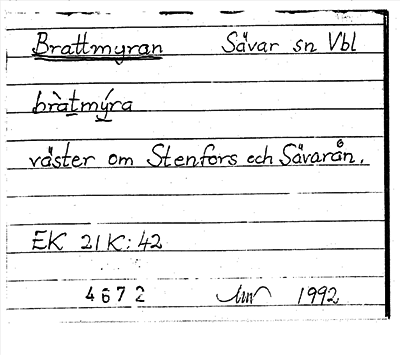 Brattmyran Sävar sn Vbl
bràtmýra
väster om Stenfors och Sävarån.
EK 21K:42
4672 1992